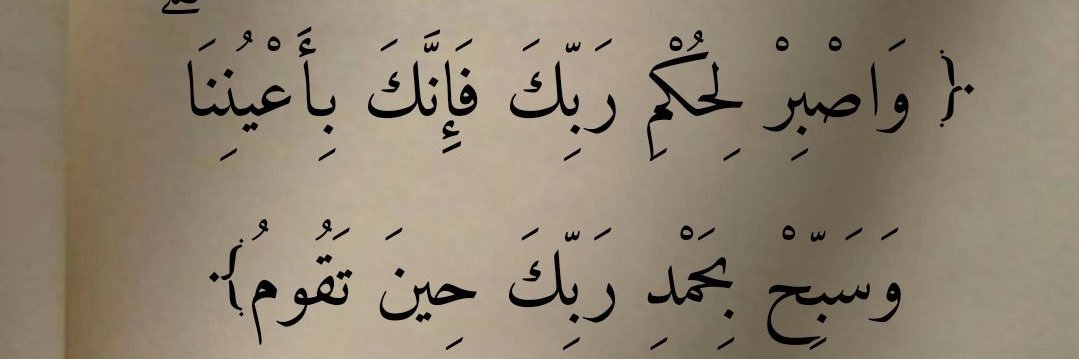 ﴿ وَاصْبِرْ لِحُكْمِ رَبِّكَ فَإِنَّكَ بِأَعْيُنِنَا ۖ
وَسَبِّحْ بِحَمْدِ رَبِّكَ حِينَ تَقُومُ ﴾